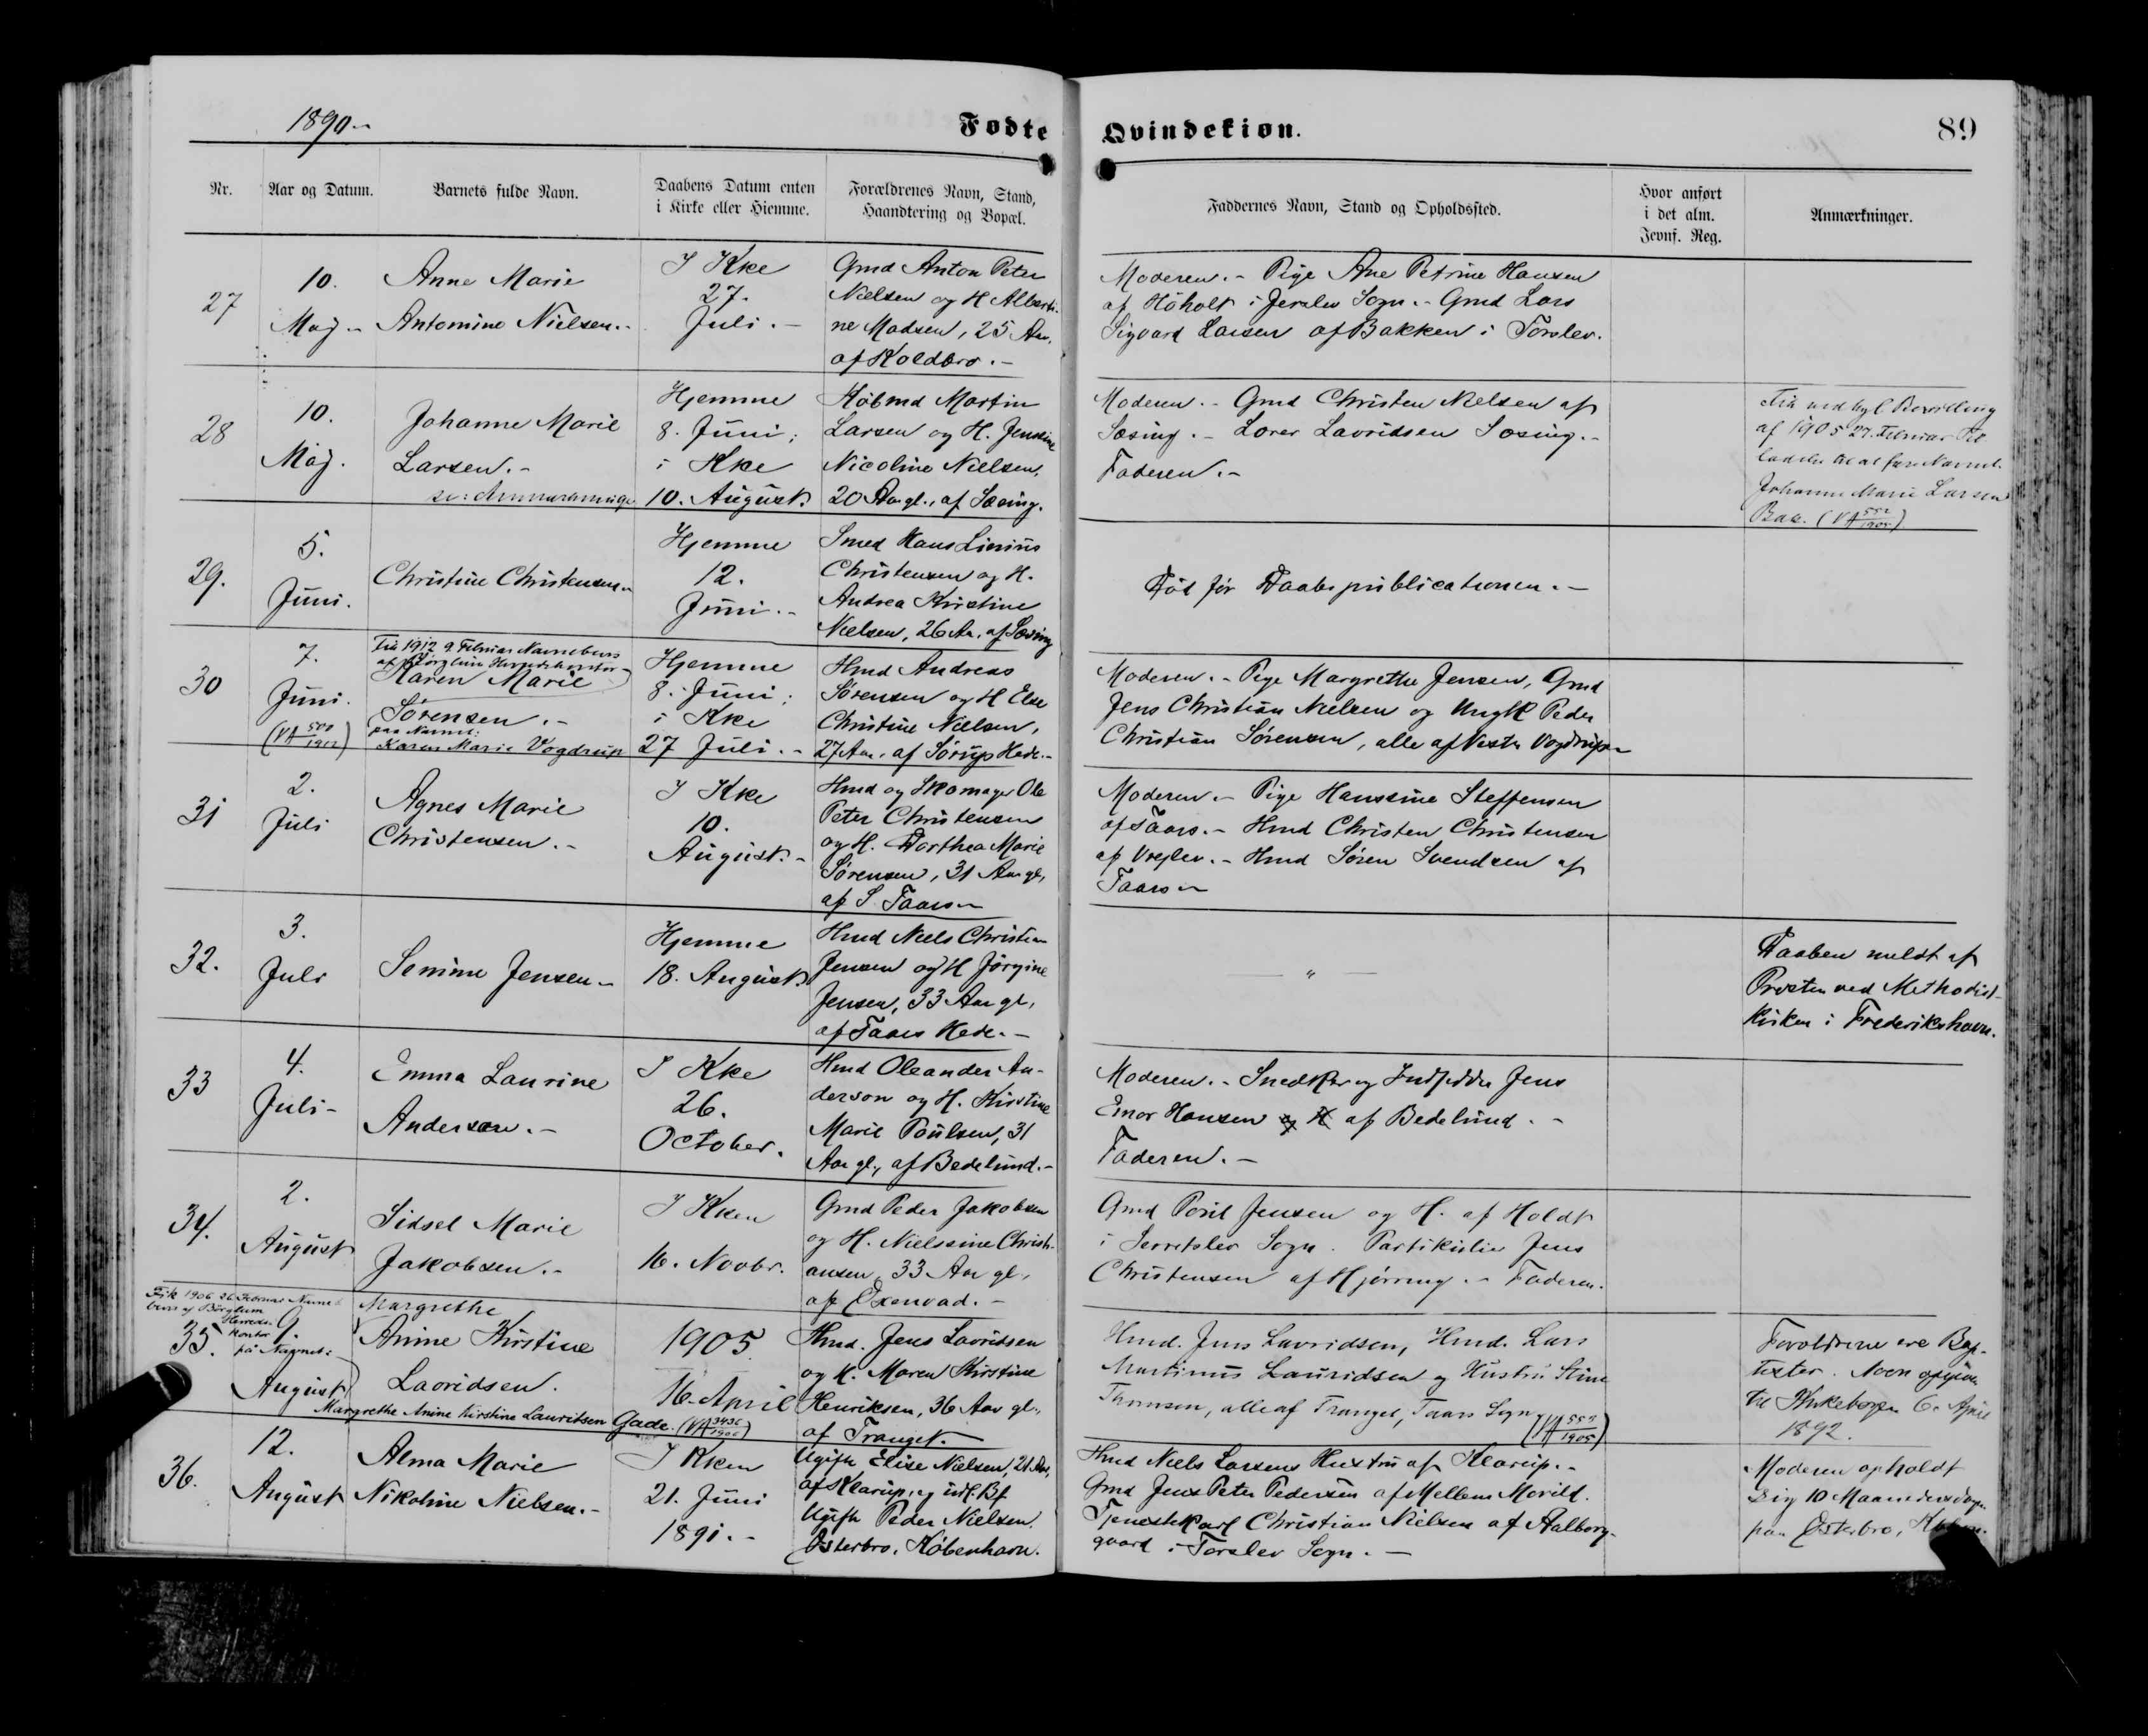 1890.-
Fødte Qvindekiøn.
89
Nr.
Aar og Datum.
Barnets fulde Navn.
Daabens Datum enten
i Kirke eller Hiemme.
Forældrenes Navn, Stand,
Haandtering og Bopæl.
Faddernes Navn, Stand og Opholdssted.
Hvor anført
i det alm.
Jevnf. Reg.
Anmærkninger.
27
10.
Maj -
Anne Marie
Antomine Nielsen.-
I Kke
27.
Juli.-
Gmd Anton Peter
Nielsen og H Alberti-
ne Madsen, 25 Aar,
af Koldbro.-
Moderen.- Pige Ane Petrine Hansen
af Höholt i Jerslev Sogn.- Gmd Lars
Sigvard Larsen af Bakken i Torslev.
28
10.
Maj.
Johanne Marie
Larsen.-
se: Anmærkninger
Hjemme
8. Juni;
i Kke
10. August.
Købmd Martin
Larsen og H. Jensine
Nicoline Nielsen,
20 Aar gl., af Sæsing.
Moderen.- Gmd Christen Nielsen af
Sæsing.- Lærer Lavridsen Sæsing.-
Faderen.-
af 1905 27. Februar Til-
ladelse til at føre Navnet
Johanne Marie Larsen
Bak. (VA 552/1905)
29.
5.
Juni.
Christine Christensen.-
Hjemme
12.
Juni.-
Smed Hans Linius
Christensen og H.
Andrea Kirstine
Nielsen, 26 Aar, af Sæsing
Död før Daabspublicationen.-
30
7.
Juni.
(VA 500/1912)
Fik 1912 9. Februar Navnebevis
af Børglum Herredskontor
Karen Marie
Sørensen.-
paa Navnet:
Karen Marie Vogdrup
Hjemme
8. Juni;
i Kke
27 Juli.-
Hmd Andreas
Sørensen og H Else
Christine Nielsen,
27 Aar, af Sørup Hede.-
Moderen.- Pige Margrethe Jensen, Gmd
Jens Christian Nielsen og Ungk Peder
Christian Sørensen, alle af Vester Vogdrup.-
31
2.
Juli
Agnes Marie
Christensen.-
I Kke
10.
August.-
Hmd og Skomager Ole
Peter Christensen
og H. Dorthea Marie
Sørensen, 31 Aar gl,
af S. Taars.-
Moderen.- Pige Hansine Steffensen
af Taars.- Hmd Christen Christensen
af Vrejlev.- Hmd Søren Svendsen af
Taars.-
32.
3.
Juli
Semine Jensen.-
Hjemme
18. August.
Hmd Niels Christian
Jensen og H Jørgine
Jensen, 33 Aar gl,
af Taars Hede.-
- " -
Daaben meldt af
Præsten ved Methodist-
kirken i Frederikshavn.
33
4.
Juli-
Emma Laurine
Anderson.-
I Kke
26.
October.
Hmd Oleander An-
derson og H. Kirstine
Marie Poulsen, 31
Aar gl., af Bedelund.-
Moderen.- Snedker og Indsidder Jens
Einar Hansen og H af Bedelund.-
Faderen.-
34.
2.
August
Sidsel Marie
Jakobsen.-
I Kken
16. Novbr.
Gmd Peder Jakobsen
og H. Nielsine Christi-
ansen, 33 Aar gl,
af Øxenvad.-
Gmd Poul Jensen og H. af Holdt
i Serretslev Sogn. Partikulier Jens
Christensen af Hjørring.- Faderen.
Fik 1906 26 Februar Navne-
bevis af Børglum
Herreds-
kontor
på Navnet:
35.
9.
August
Margrethe
Anine Kirstine
Lavridsen.
Margrethe Anine Kirstine Lauritsen Gade. (VA 3436/1906)
1905
16. April
Hmd. Jens Lavridsen
og H. Maren Kirstine
Henriksen, 36 Aar gl.,
af Tranget.-
Hmd. Jens Lavridsen, Hmd. Lars
Martinus Lauridsen og Hustru Stine
Thomsen, alle af Tranget, Taars Sogn (VA 559/1905)
Forældrene ere Bap-
tister. Navn opgiven
6. April
1892.
36.
12.
August
Alma Marie
Nikoline Nielsen.-
I Kken
21. Juni
1891.-
Ugifte Elise Nielsen, 21 Aar,
af Klarup, og udl. Bf
Ugifte Peder Nielsen.
Østerbro, København.
Hmd Niels Larsens Hustru af Klarup.-
Gmd Jens Peter Pedersen af Mellem Morild.
Tjenestekarl Christian Nielsen af Aalborg-
gaard i Torslev Sogn.-
Moderen opholdt
sig 10 Maanedersdagen
paa Østerbro, Kbhvn.